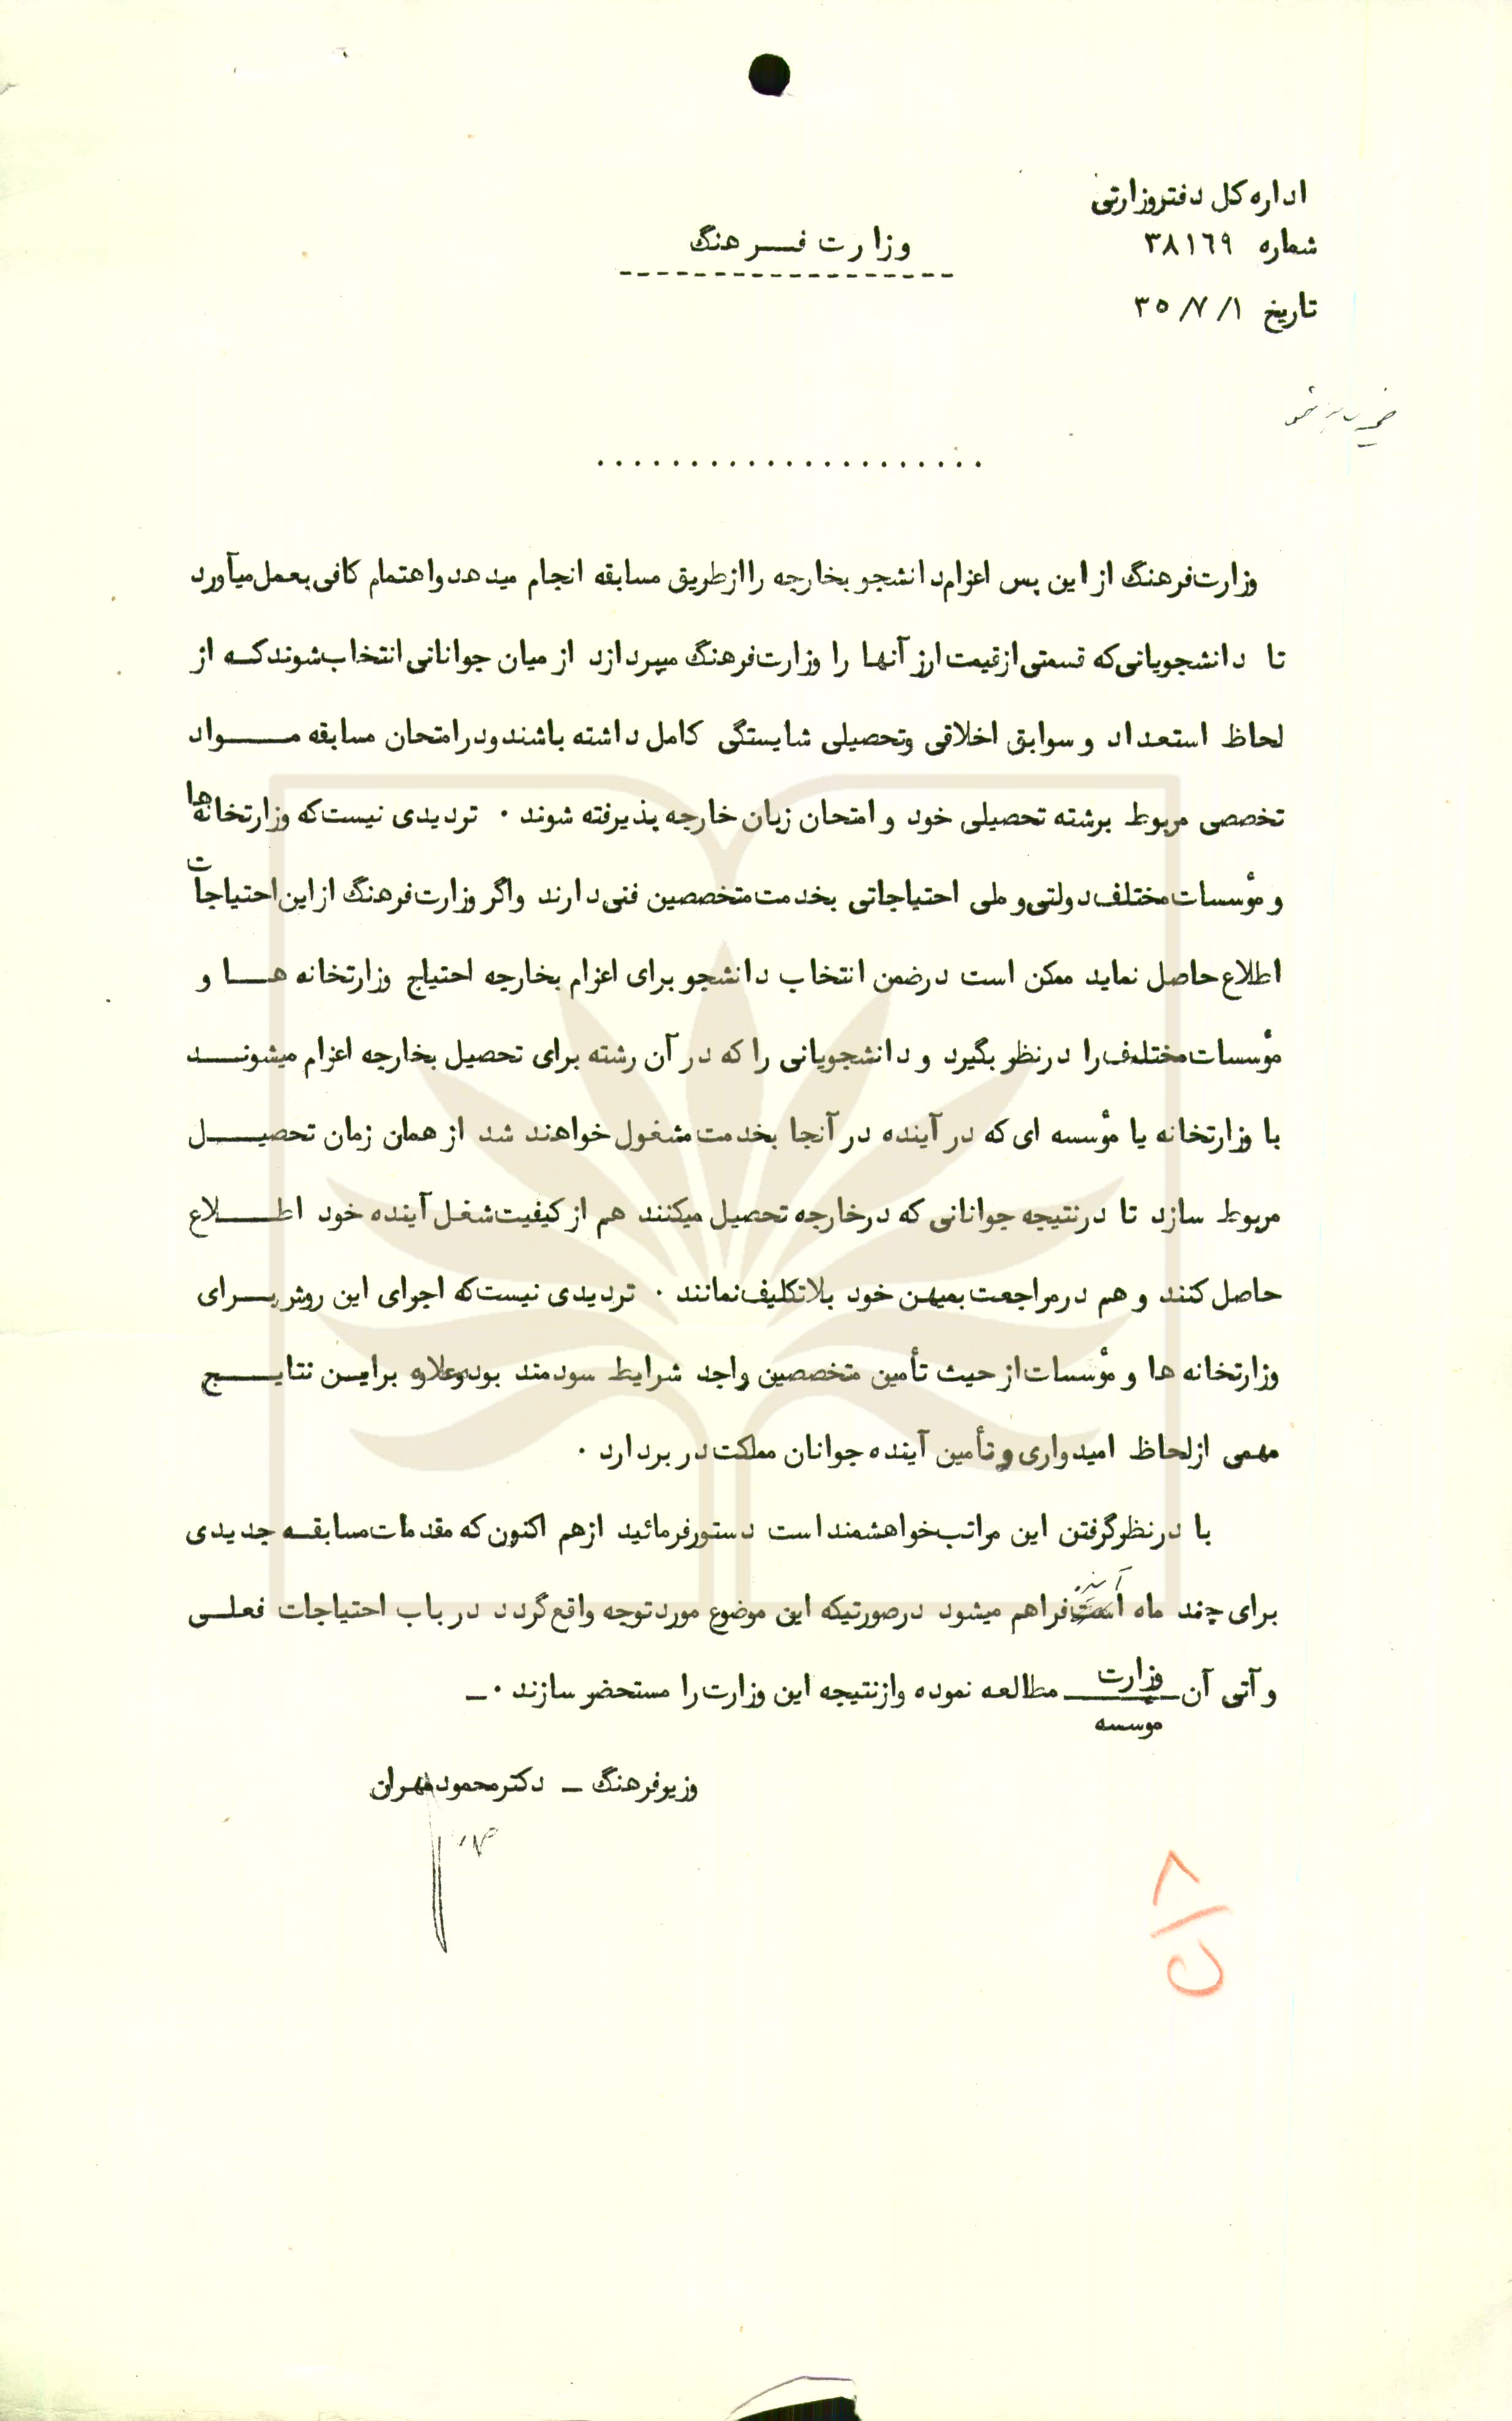 اداره کل دفتر وزارتی
وزارت فرهنگ
شماره ۳۸۱٦۹
تاریخ ۳٥/۷/۱
......................
وزارت فرهنگ از این پس اعزام دانشجو بخارجه را از طریق مسابقه انجام میدهد و اهتمام کافی بعمل میآورد
تا دانشجویانی که قسمتی از قیمت ارز آنها را وزارت فرهنگ میپردازد از میان جوانانی انتخاب شوند که از
لحاظ استعداد و سوابق اخلاقی وتحصیلی شایستگی کامل داشته باشند ودر امتحان مسابقه مواد
تخصصی مربوط برشته تحصیلی خود و امتحان زبان خارجه پذیرفته شوند . تردیدی نیست که وزارتخانه ها
و مؤسسات مختلف دولتی و ملی احتیاجاتی بخدمت متخصصین فنی دارند واگر وزارت فرهنگ از این احتیاجات
اطلاع حاصل نماید ممکن است درضمن انتخاب دانشجو برای اعزام بخارجه احتیاج وزارتخانه ها و
مؤسسات مختلف را درنظر بگیرد و دانشجویانی را که در آن رشته برای تحصیل بخارجه اعزام میشوند
با وزارتخانه یا مؤسسه ای که در آینده در آنجا بخدمت مشغول خواهند شد از همان زمان تحصیل
مربوط سازد تا درنتیجه جوانانی که درخارجه تحصیل میکنند هم از کیفیت شغل آینده خود اطلاع
حاصل کنند و هم درمراجعت بمیهن خود بلاتکلیف نمانند . تردیدی نیست که اجرای این روش برای
وزارتخانه ها و مؤسسات از حیث تأمین متخصصین واجد شرایط سودمند بوده وعلاوه براین نتایج
مهمی ازلحاظ امیدواری و تأمین آینده جوانان مملکت در بردارد .
با درنظر گرفتن این مراتب خواهشمند است دستور فرمائید ازهم اکنون که مقدمات مسابقه جدیدی
برای چند ماه آینده فراهم میشود درصورتیکه این موضوع مورد توجه واقع گردد در باب احتیاجات فعلی
و آتی آن وزارت مطالعه نموده وازنتیجه این وزارت را مستحضر سازند .ـ
موسسه
وزیر فرهنگ ـ دکتر محمود مهران